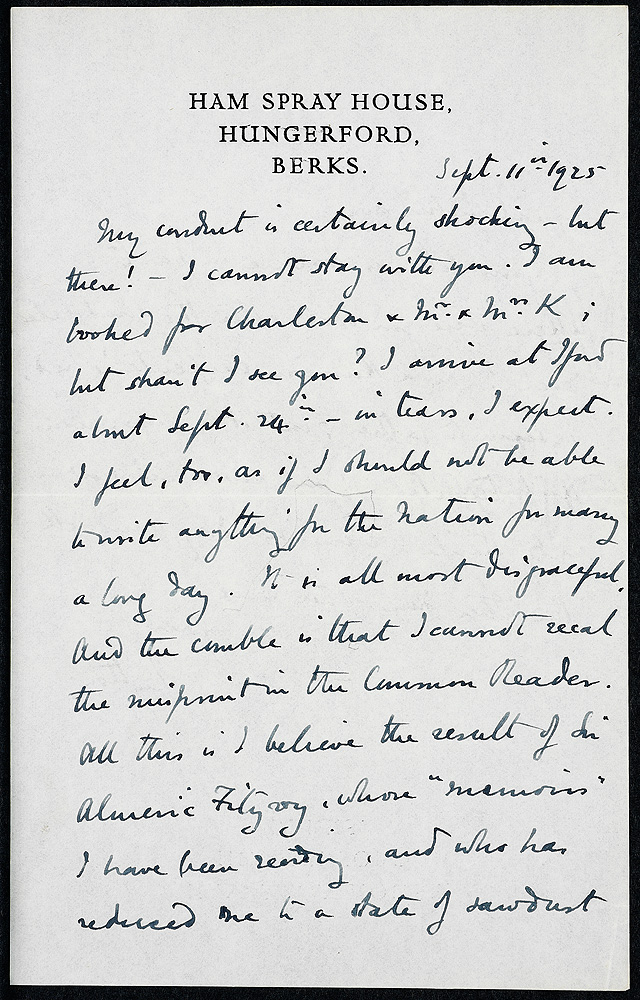 HAM SPRAY HOUSE,
HUNGERFORD,
BERKS.
Sept. 11th 1925
My conduct is certainly shocking – but
there! – I cannot stay with you. I am
booked for Charleston & Mr. & Mrs. K ;
but shan't I see you? I arrive at Iford
about Sept. 24th – in tears, I expect.
I feel, too, as if I should not be able
to write anything for the Nation for many
a long day. It is all most disgraceful.
And the comble is that I cannot recal
the misprint in the Common Reader.
All this is I believe the result of Sir
Almeric Fitzroy, whose "memoirs"
I have been reading, and who has
reduced me to a state of sawdust